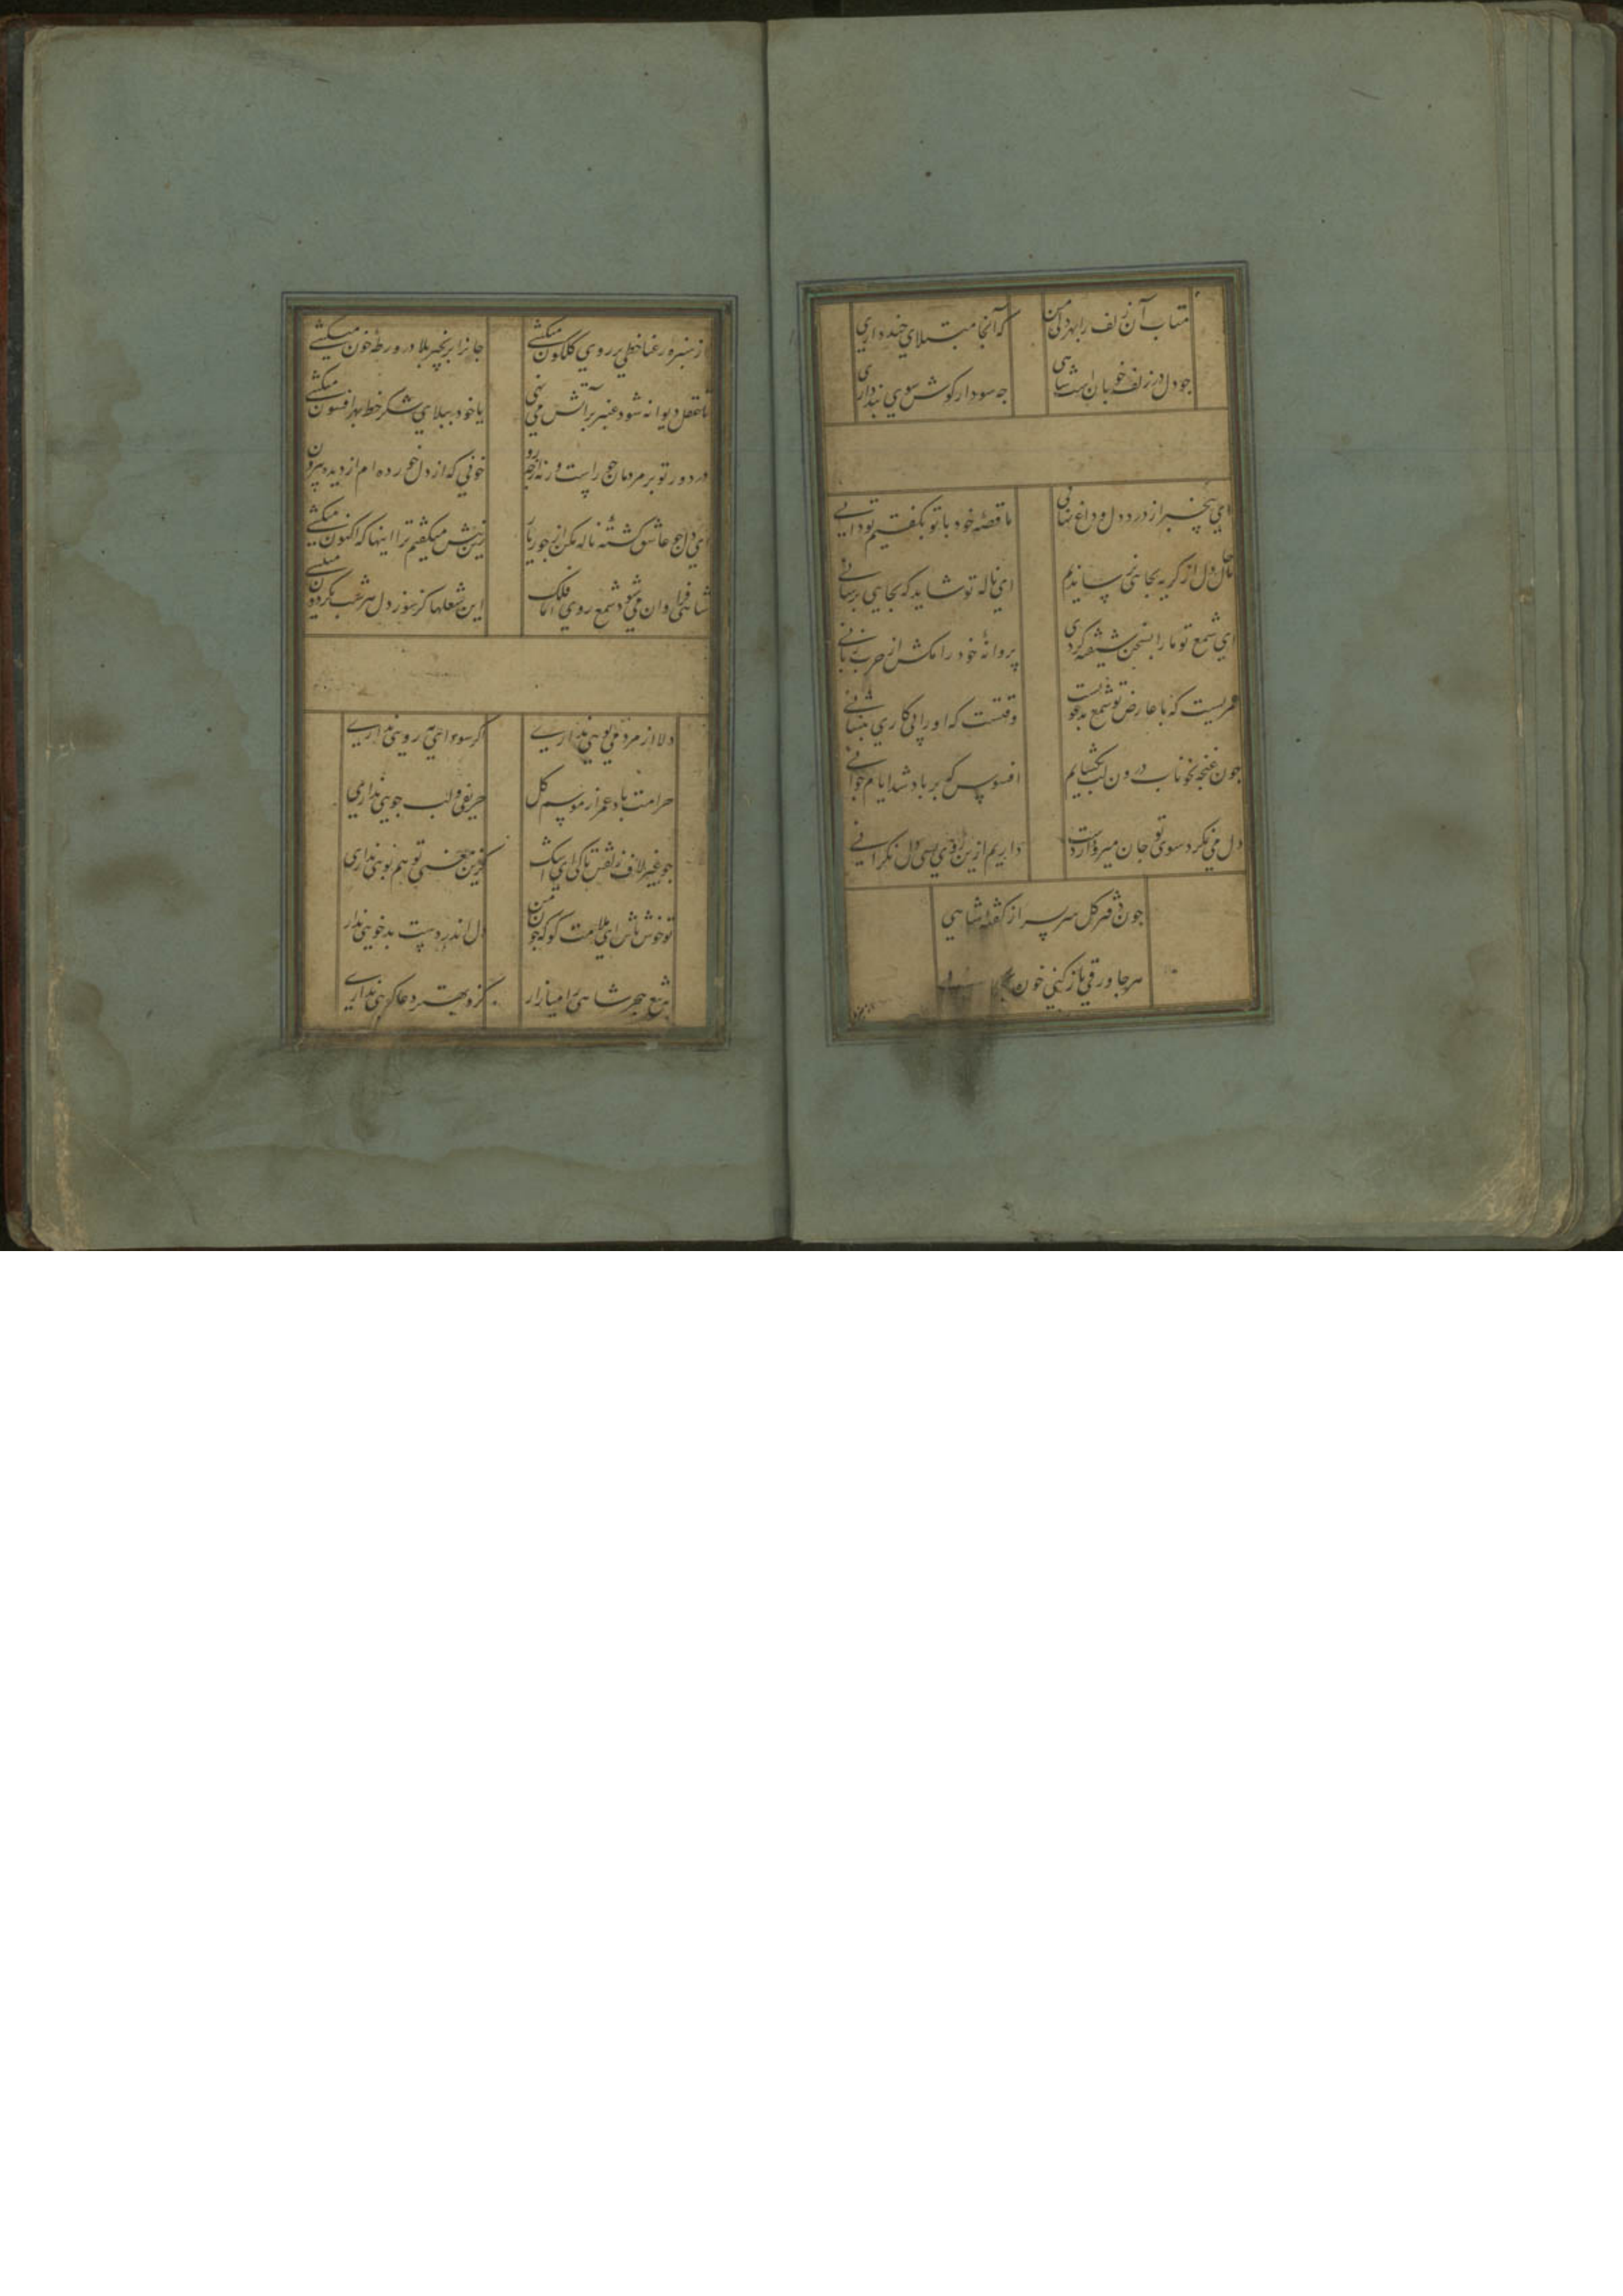 متاب آن زلف را بهر دل من
که آنجا مبتلای چند داری
جو دل در زلف خوبان بست شاهی
جه سود ار کوش سوی پند داری
ای بیخبر از درد دل و داغ نهانی
ما قصهٔ خود با تو بگفتیم تو دانی
ما حال دل از گریه بجایی نرساندیم
ای ناله تو شاید که بجایی برسانی
ای شمع تو ما را بسخن شیفته کردی
پروانهٔ خود را مکش از چرب زبانی
عمریست که با عارض تو شمع بدعویست
وقتست که او را پی کاری بنشانی
جون غنجه بخوناب درون لب نگشایم
افسوس که بر باد شد ایام جوانی
دل می نکرد سوی تو جان میرود از دست
داریم ازین روی بسی دل نگرانی
جون دفتر کل سر بسر از گفتهٔ شاهی
هر جا ورقی باز کنی خون
از سبزهٔ رعنا خطی بر روی گلگون میکشی
جانرا بزنجیر بلا در ورطهٔ خون میکشی
تا عقل دیوانه شود عنبر بر آتش می نهی
یا خود ببالای شکر خط بهر افسون میکشی
در دور تو بر مردمان جور است ورنه از جه رو
خونی که از دل خورده ام از دیده بیرون میکشی
ای دل جو عاشق گشتهٔ ناله مکن از جور یار
زین پیش میگفتم ترا اینها که اکنون میکشی
شاهی فراوان می شود شمع روی فلک
این شعلها کز سوز دل هر شب بگردون میکشی
دلا از مردمی بویی نداری
اگر سودای مه رویی نداری
حرامت باد عمر از موسم گل
حریفی و لب جویی نداری
جو عنبر لاف زلفش تا کی ای مشک
کزین معنی تو هم بویی نداری
تو خوش باش ای ملامت گو که جون من
دل اندر دست بدخویی نداری
بتیغ هجر شاهی را میازار
کزو بهتر دعاگویی نداری